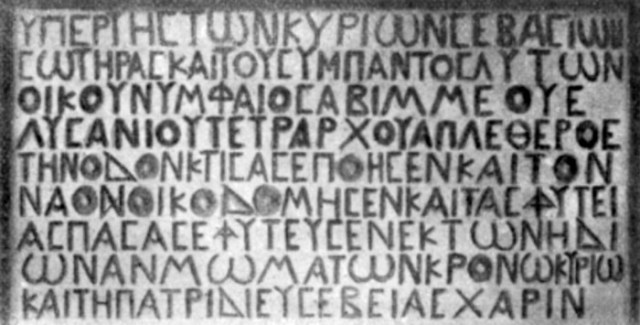 ΥΠΕΡΙΗCΤΩΝΚΥΡΙΩΝCΕΒΑCΙΩΝ
CΩΤΗΡΑCΚΑΙΤΟΥCΥΜΠΑΝΤΟCΛΥΤΩΝ
ΟΙΚΟΥΝΥΜΦΑΙΟCΑΒΙΜΜΕΟΥΕ
ΛΥCΑΝΙΟΥΤΕΤΡΑΡΧΟΥΑΠΛΕΘΕΡΟΕ
ΤΗΝΟΔΟΝΚΤΙCΑCΕΠΟΗCΕΝΚΑΙΤΟΝ
ΝΑΟΝΟΙΚΟΔΟΜΗCΕΝΚΑΙΤΑCΦΥΤΕΙ
ΑCΠΑCΑCΕΦΥΤΕΥCΕΝΕΚΤΩΝΗΔΙ
ΩΝΑΝΜΩΜΑΤΩΝΚΡΟΝΩΚΥΡΙΩ
ΚΑΙΤΗΠΑΤΡΙΔΙΕΥCΕΒΕΙΑCΧΑΡΙΝ